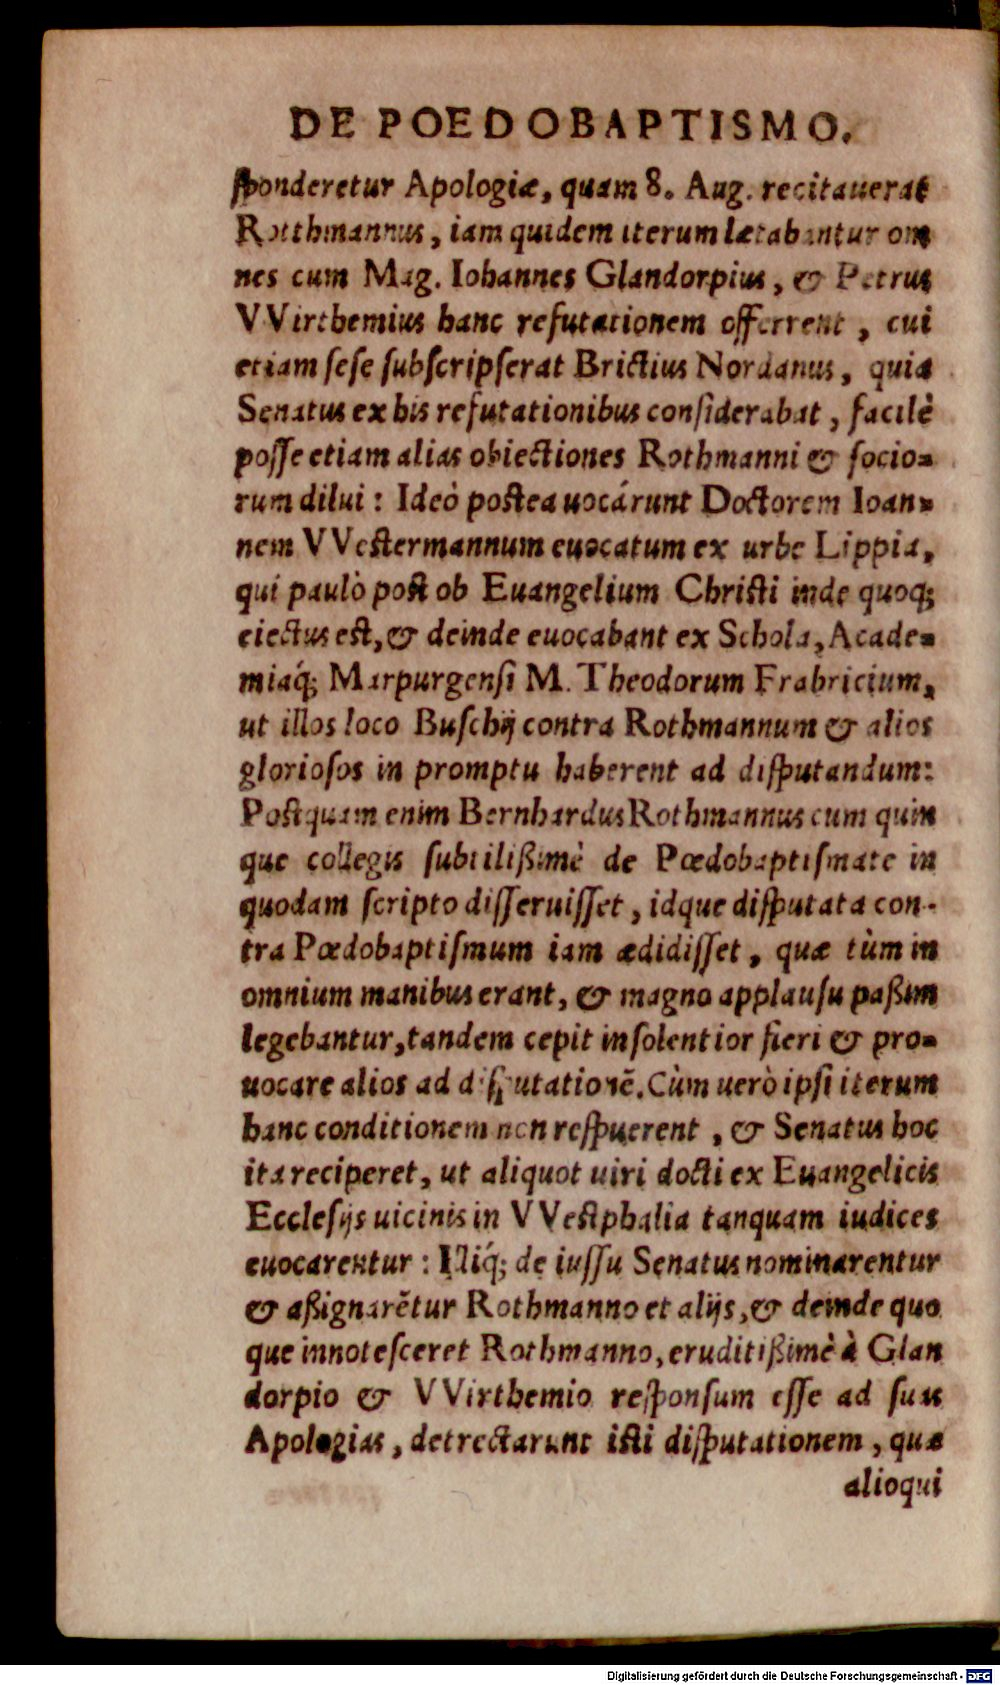 DE POEDOBAPTISMO.
ſponderetur Apologiæ, quam 8. Aug. recitauerat
Rotthmannus, iam quidem iterum lætabantur om
nes cum Mag. Iohannes Glandorpius, & Petrus
VVirthemius hanc refutationem offerrent, cui
etiam ſeſe ſubſcripſerat Brictius Nordanus, quia
Senatus ex his refutationibus conſiderabat, facilè
poſſe etiam alias obiectiones Rothmanni & ſocio-
rum dilui: Ideò poſtea uocárunt Doctorem Ioan-
nem VVeſtermannum euocatum ex urbe Lippia,
qui paulò poſt ob Euangelium Chriſti inde quoq;
eiectus eſt, & deinde euocabant ex Schola, Acade-
miaq́; Marpurgenſi M. Theodorum Frabricium,
ut illos loco Buſchij contra Rothmannum & alios
glorioſos in promptu haberent ad diſputandum:
Poſtquam enim Bernhardus Rothmannus cum quin
que collegis ſubtilißimè de Pœdobaptiſmate in
quodam ſcripto diſſeruiſſet, idque diſputata con-
tra Pœdobaptiſmum iam ædidiſſet, quæ tùm in
omnium manibus erant, & magno applauſu paßim
legebantur, tandem cepit inſolentior fieri & pro-
uocare alios ad diſputationẽ. Cùm uerò ipſi iterum
hanc conditionem non reſpuerent, & Senatus hoc
ita reciperet, ut aliquot uiri docti ex Euangelicis
Eccleſijs uicinis in VVeſtphalia tanquam iudices
euocarentur: Illiq́; de iuſſu Senatus nominarentur
& aßignarẽtur Rothmanno et alijs, & deinde quo
que innoteſceret Rothmanno, eruditißimè à Glan
dorpio & VVirthemio reſponſum eſſe ad ſuas
Apologias, detrectarunt iſti diſputationem, quæ
alioqui
Digitalisierung gefördert durch die Deutsche Forschungsgemeinschaft - DFG